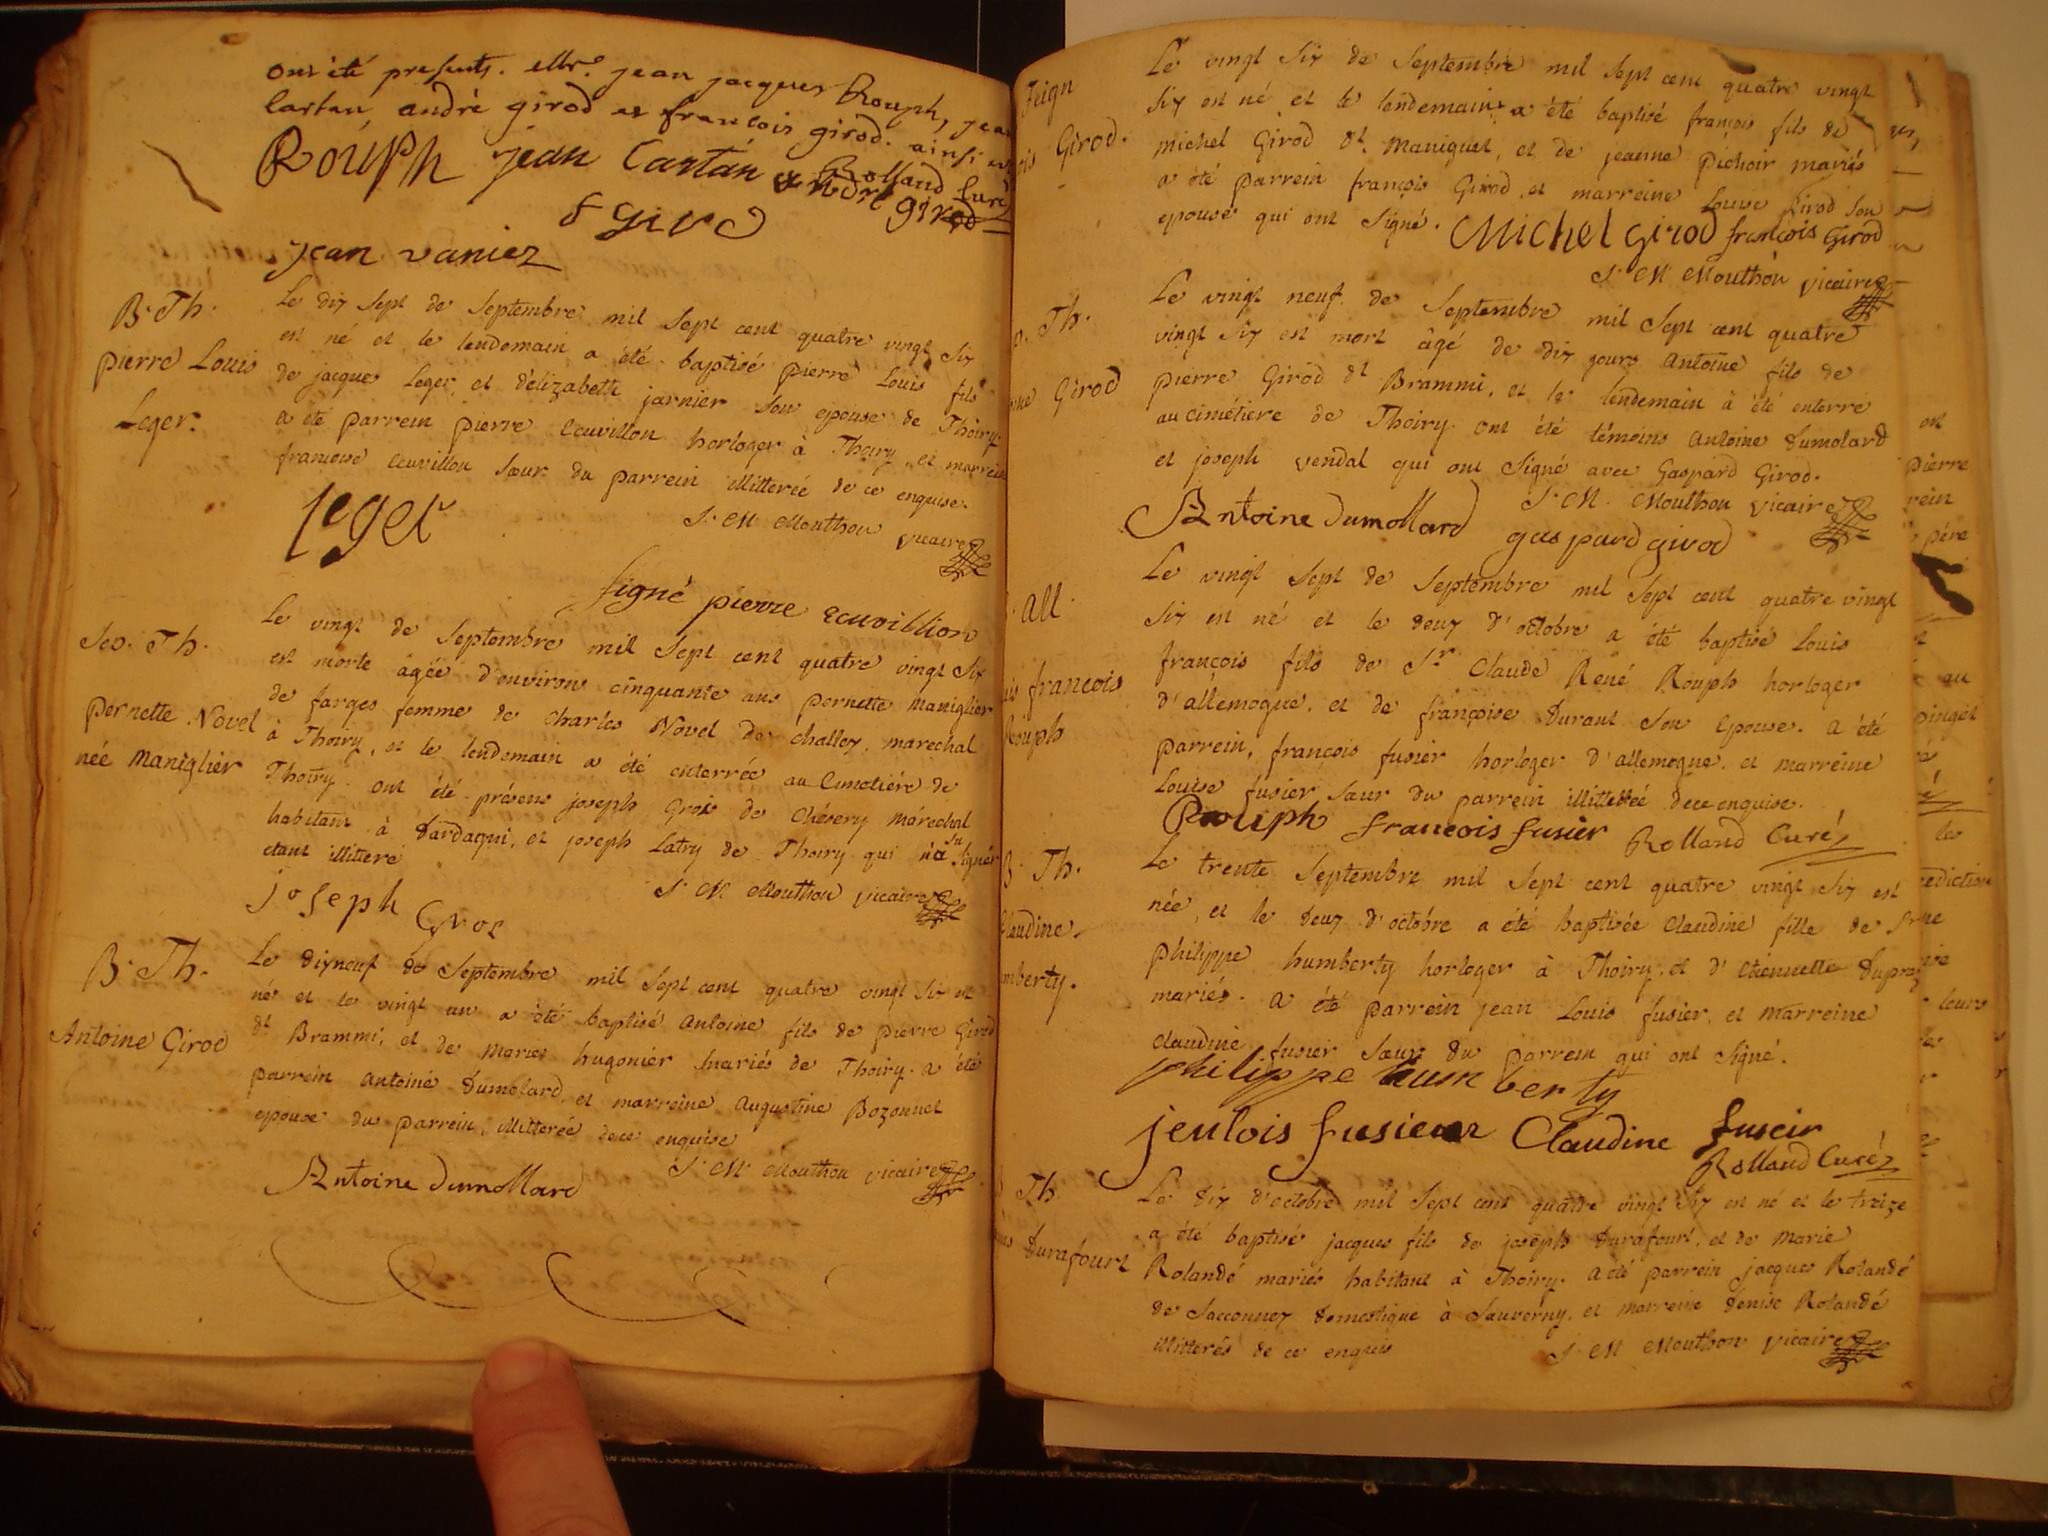 ont été presents. Mtre. jean jacques Rouph, jean
Cartan, andré girod et francois girod. ainsi est
Rouph jean Cartan Rolland Curé
andré girod
f giro
jean vaniez
B. Th.
pierre Louis
Leger.
Le dix sept de Septembre mil sept cent quatre vingt six
est né et le lendemain a été baptisé pierre Louis fils
de jacques Leger, et d'élizabeth jarnier son epouse de Thoiry.
a été parrein pierre Ecuvillon horloger à Thoiry et marreine
francoise Ecuvillon sœur du parrein illitterée de ce enquise.
leger J. M. Mouthon vicaire
signé pierre Ecuvillion
Sep. Th.
pernette Novel
née Maniglier
Le vingt de Septembre mil sept cent quatre vingt six
est morte agée d'environ cinquante ans pernette Maniglier
de farges femme de Charles Novel de challex, marechal
à Thoiry, et le lendemain a été enterrée au Cimetiére de
Thoiry. ont été présens joseph Gros de Chésery maréchal
habitant à Dardagni, et joseph Latry de Thoiry qui n'a su signer
etant illitteré
joseph Gros J. M. Mouthon vicaire
B. Th.
Antoine Girod
Le dixneuf de Septembre mil sept cent quatre vingt six est
né et le vingt un a été baptisé Antoine fils de pierre Girod
dt. Brammi, et de Marie hugonier mariés de Thoiry. a été
parrein Antoine Dumolard, et marreine Augustine Bozonnet
epouse du parrein, illitterée de ce enquise
Antoine Dumollard J. M. Mouthon vicaire
feign
Girod.
Le vingt six de Septembre mil sept cent quatre vingt
six est né et le lendemain a été baptisé françois fils de
michel Girod dt. Maniguet, et de jeanne pichoir mariés
a été parrein françois Girod et marreine Louise Girod son
epouse qui ont signé. Michel Girod francois Girod
J. M. Mouthon vicaire
Th.
Girod
Le vingt neuf de Septembre mil sept cent quatre
vingt six est mort âgé de dix jours Antoine fils de
pierre Girod dt Brammi, et le lendemain à été enterré
au cimétiere de Thoiry. ont été témoins Antoine Dumolard
et joseph vendal qui ont signé avec Gaspard Girod.
J. M. Mouthon vicaire
Antoine Dumollard gaspard girod
All.
françois
Rouph
Le vingt sept de Septembre mil sept cent quatre vingt
six est né et le deux d'octobre a été baptisé Louis
françois fils de Sr. Claude René Rouph horloger
d'allemogne, et de françoise Durant son epouse. a été
parrein, francois fusier horloger d'allemogne. et marreine
Louise fusier sœur du parrein illitterée de ce enquise.
Rouph francois fusier Rolland Curé
B. Th.
Claudine
humberty.
Le trente Septembre mil sept cent quatre vingt six est
née, et le deux d'octobre a été baptisée Claudine fille de
philippe humberty horloger à Thoiry, et d'Etiennette Dupraz
mariés. a été parrein jean Louis fusier, et marreine
claudine fusier sœur du parrein qui ont signé.
philippe humberty
jenlois fusieur Claudine fuseir
Rolland Curé
Th
Durafourt
Le dix d'octobre mil sept cent quatre vingt six est né et le treize
a été baptisé jacques fils de joseph Durafourt, et de Marie
Rolandé mariés habitant à Thoiry. a été parrein jacques Rolandé
de Sacconnex domestique à Sauverny, et marreine denise Rolandé
illitterés de ce enquis J. M. Mouthon vicaire